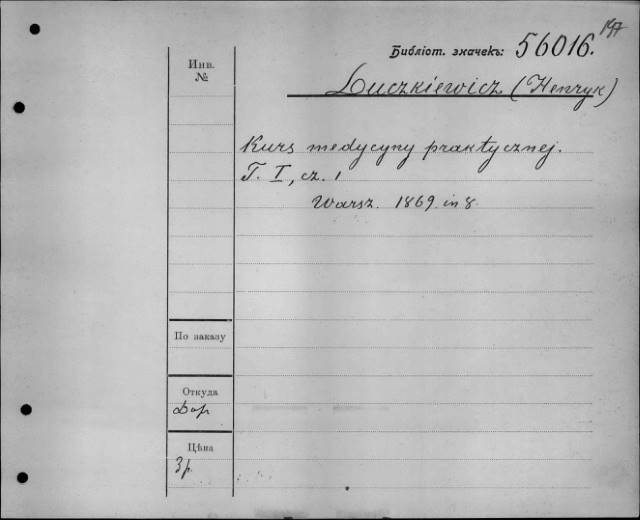 Библіот. значекъ: 56016.
Инв.
№
Łuczkiewicz (Henryk)
Kurs medycyny praktycznej.
T. I, cz. 1
Warsz. 1869. in 8.
По заказу
Откуда
Дар
Цѣна
3 р.